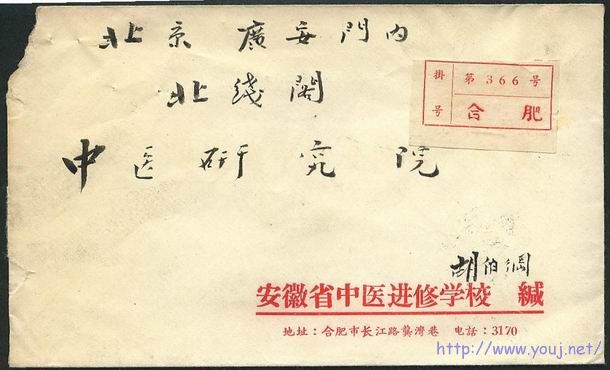 北京廣安門内
北线閣
中医研究院
掛号 第366号
合肥
胡伯
安徽省中医进修学校 缄
地址：合肥市长江路龔湾巷 电話：3170
http://www.youj.net/